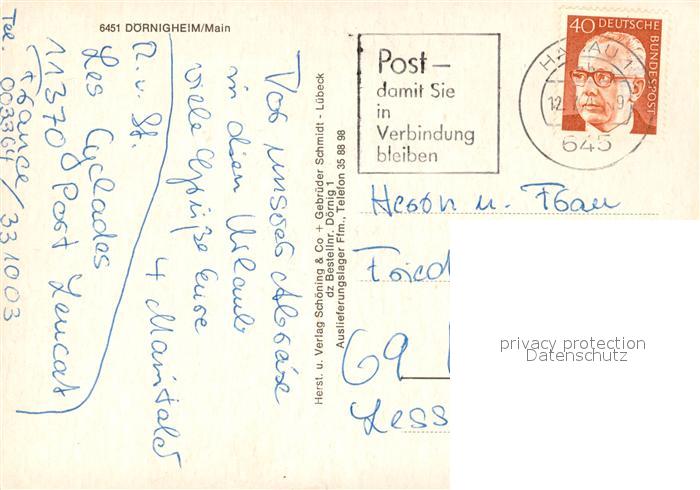 6451 DÖRNIGHEIM/Main
Vor unserer Abreise
in den Urlaub
viele Grüße Eure
4 Maintaler
R. v. St.
Les Cyclades
11370 Port Leucate
France
Tel. 003364/331003
Herst. u. Verlag Schöning & Co + Gebrüder Schmidt - Lübeck
dz Bestellnr. Dörnig 1
Auslieferungslager Ffm., Telefon 35 88 98
Post –
damit Sie
in
Verbindung
bleiben
40 DEUTSCHE
BUNDESPOST
HANAU 1
645
Herrn u. Frau
Fried
69
Less
privacy protection
Datenschutz